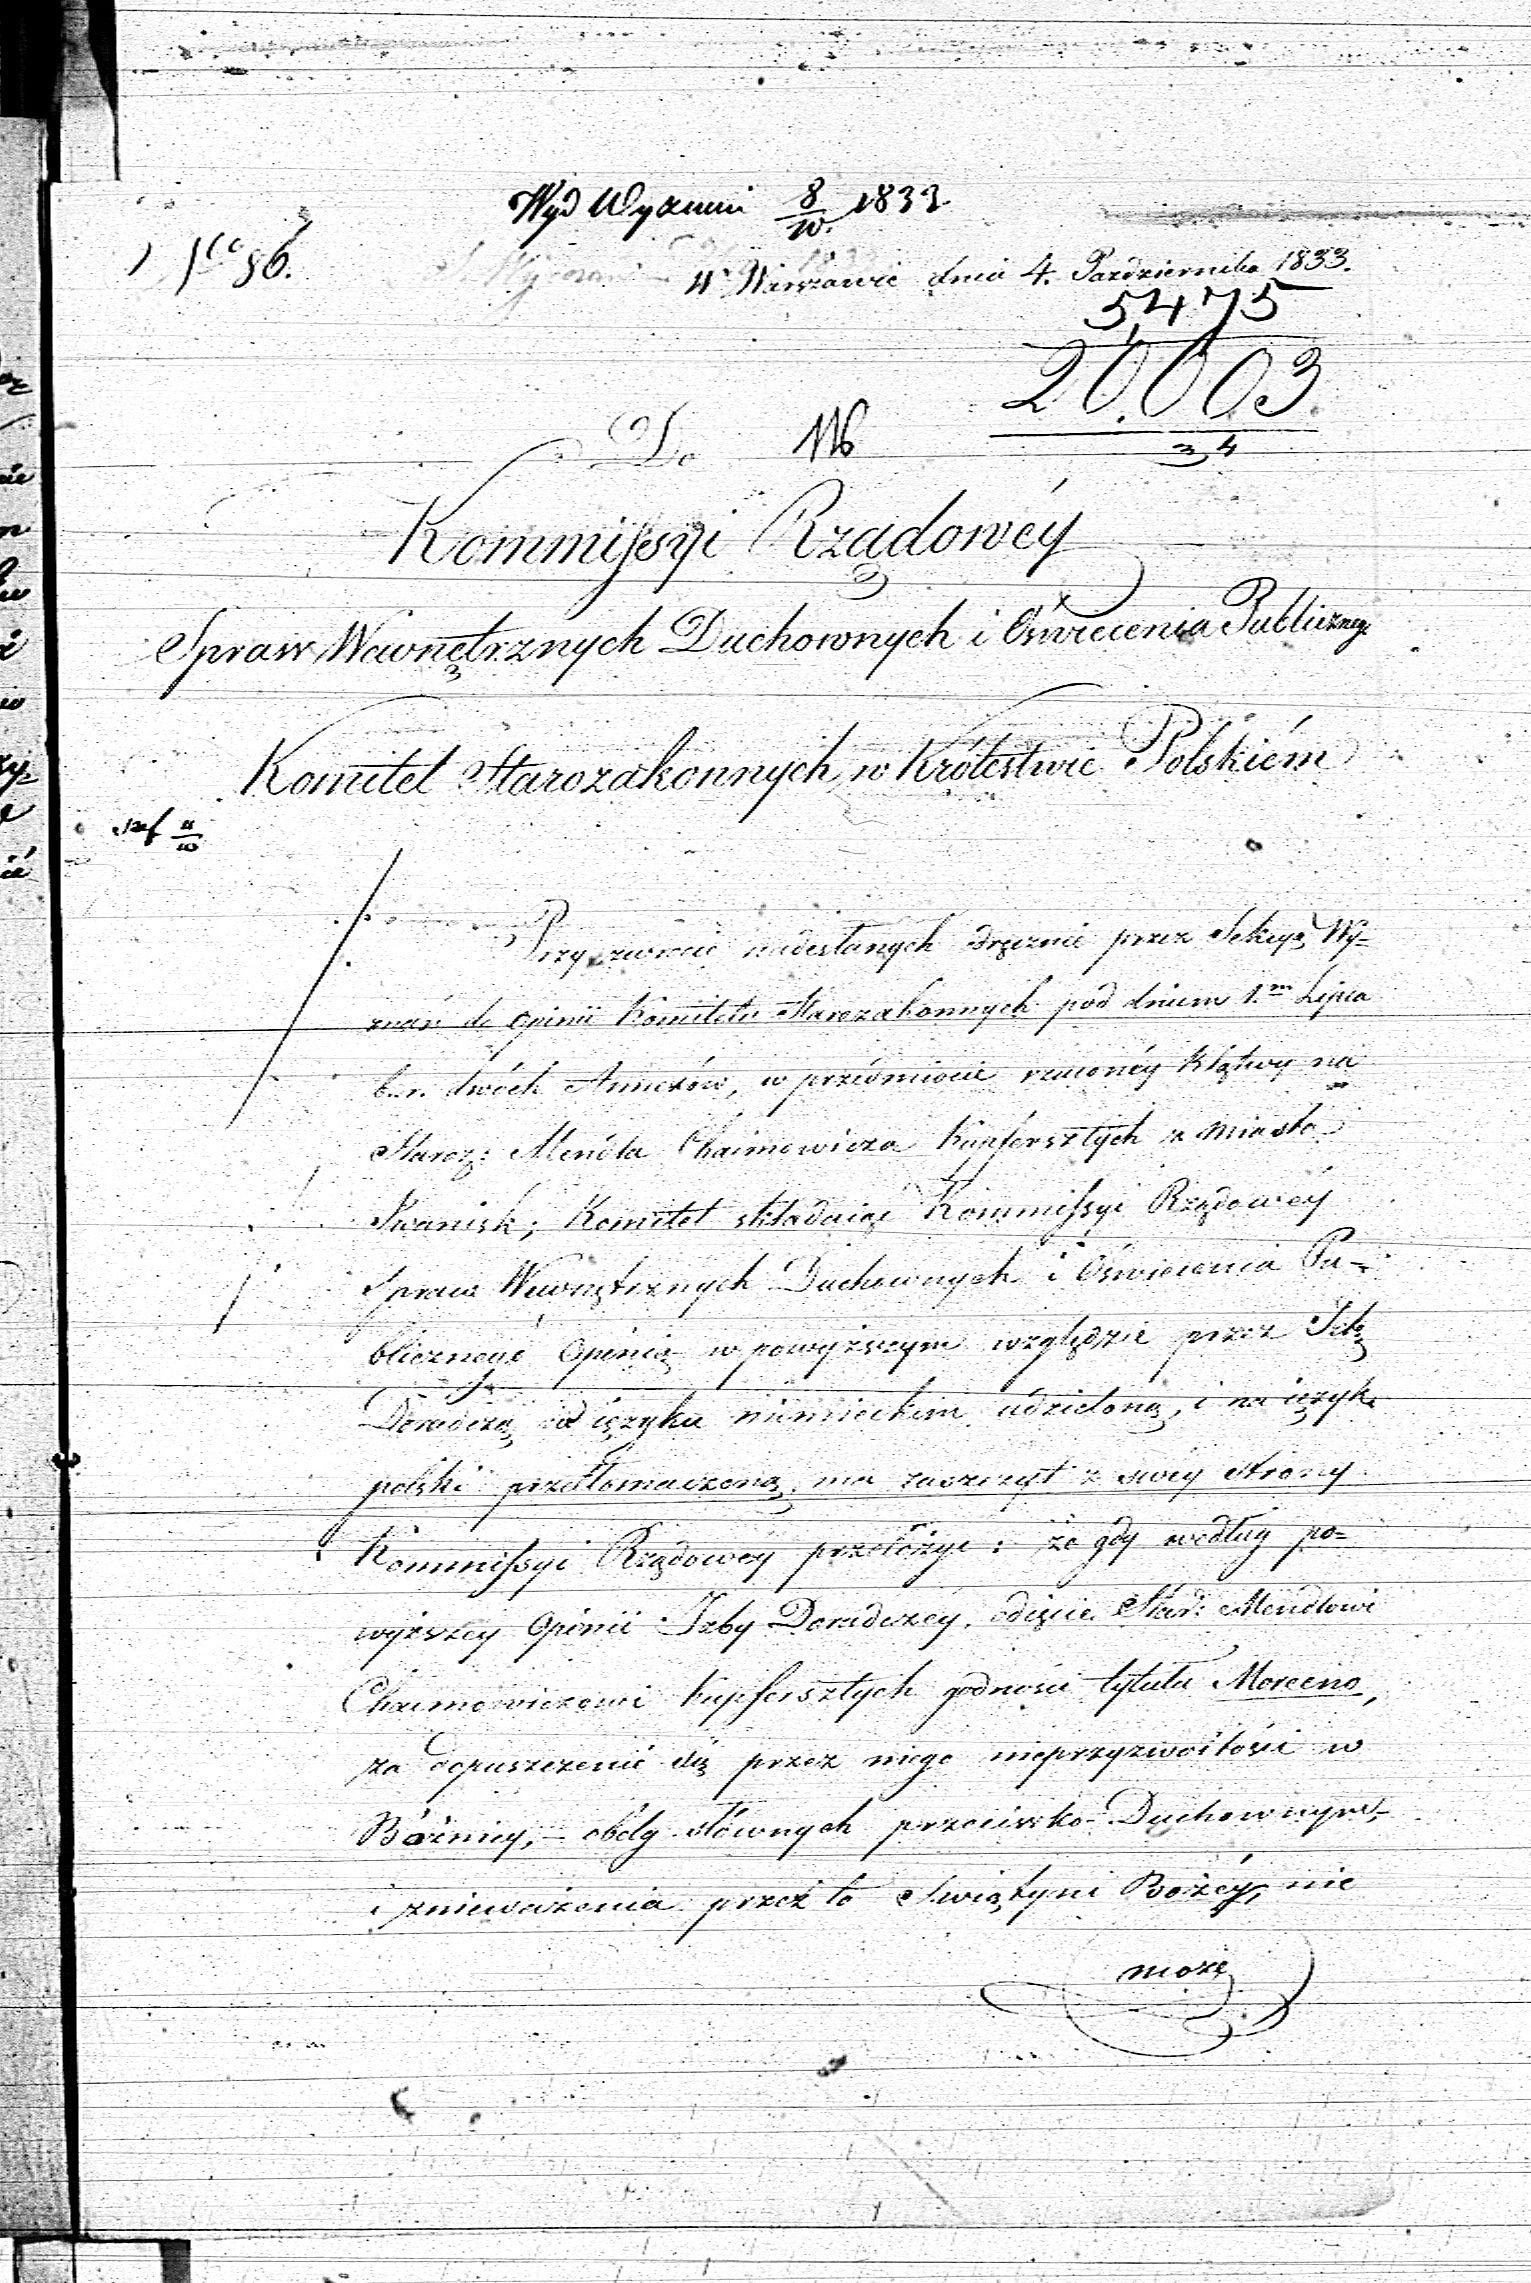 Wyd Wyznań 8/10 1833
N° 86.
w Warszawie dnia 4. Października 1833.
5475
20,003
34
Do
Kommissyi Rządowéy
Spraw Wewnętrznych Duchownych i Oświecenia Publiczneg.
Komitet Starozakonnych w Królestwie Polskiém
Przy zwrocie nadesłanych dręcznie przez Sekcyą Wy-
znań do opinii Komitetu Starozakonnych pod dniem 1.m Lipca
b. r. dwóch Annexów, w przedmiocie rzuconéy klątwy na
Staroz: Mendla Chaimowicza Kupfersztych z miasta
Iwanisk; Komitet składaiąc Kommissyi Rządowéy
Spraw Wewnętrznych Duchownych i Oświecenia Pu-
blicznego Opinią w powyższym względzie przez Izbę
Doradczą w ięzyku niemieckim udzieloną, i na ięzyk
polski przetłomaczoną, ma zaszczyt z swéy strony
Kommissyi Rządowéy przełożyć: że gdy według po-
wyższey Opinii Izby Doradczey, odięcie Star: Mendlowi
Chaimowiczowi Kupfersztych godności tytułu Moreeno,
za dopuszczenie się przez niego nieprzyzwoitości w
Bóżnicy, obelg słownych przeciwko Duchownym,
i znieważenia przez to Swiątyni Bożéy, nie
może